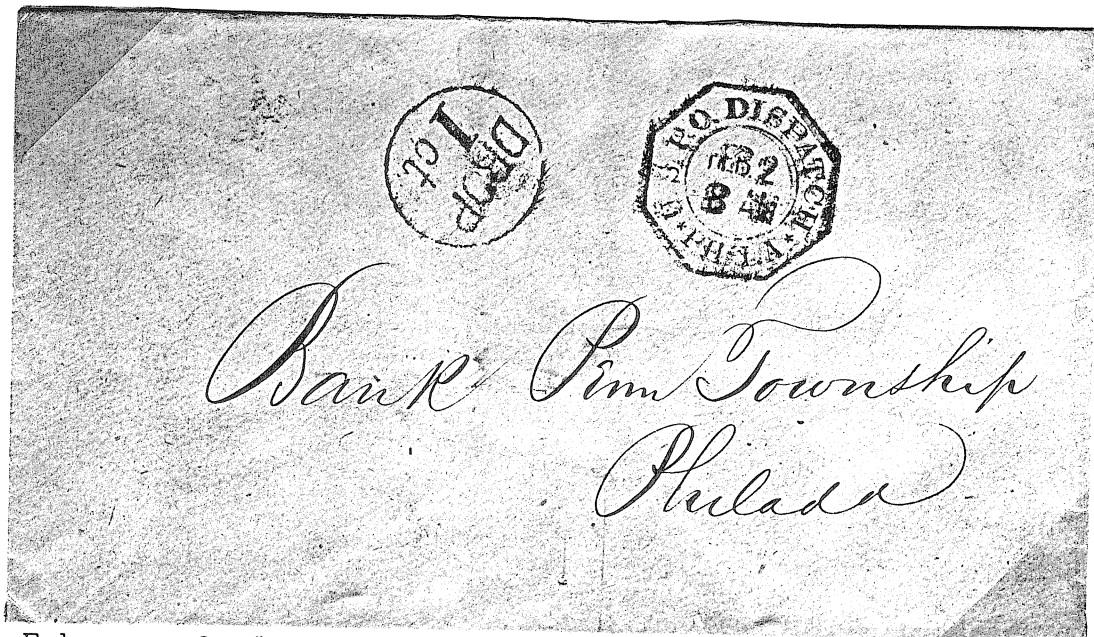 DROP
1
ct
U.S.P.O. DISPATCH
PHILA
FEB 2
8
Bank Penn Township
Philada